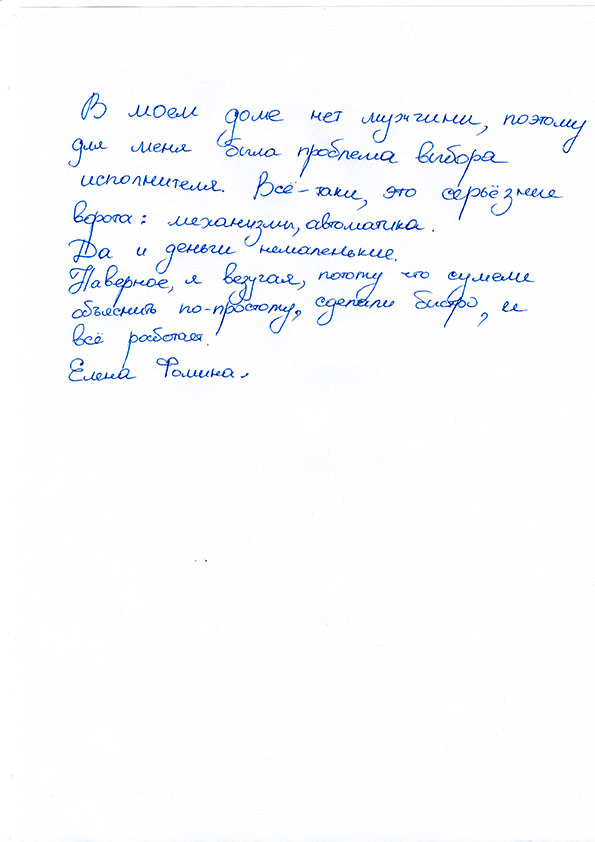 В моем доме нет мужчины, поэтому
для меня была проблема выбора
исполнителя. Всё-таки, это серьёзные
ворота: механизмы, автоматика.
Да и деньги немаленькие.
Наверное, я везучая, потому что сумели
объяснить по-простому, сделали быстро, и
всё работает.
Елена Фомина.